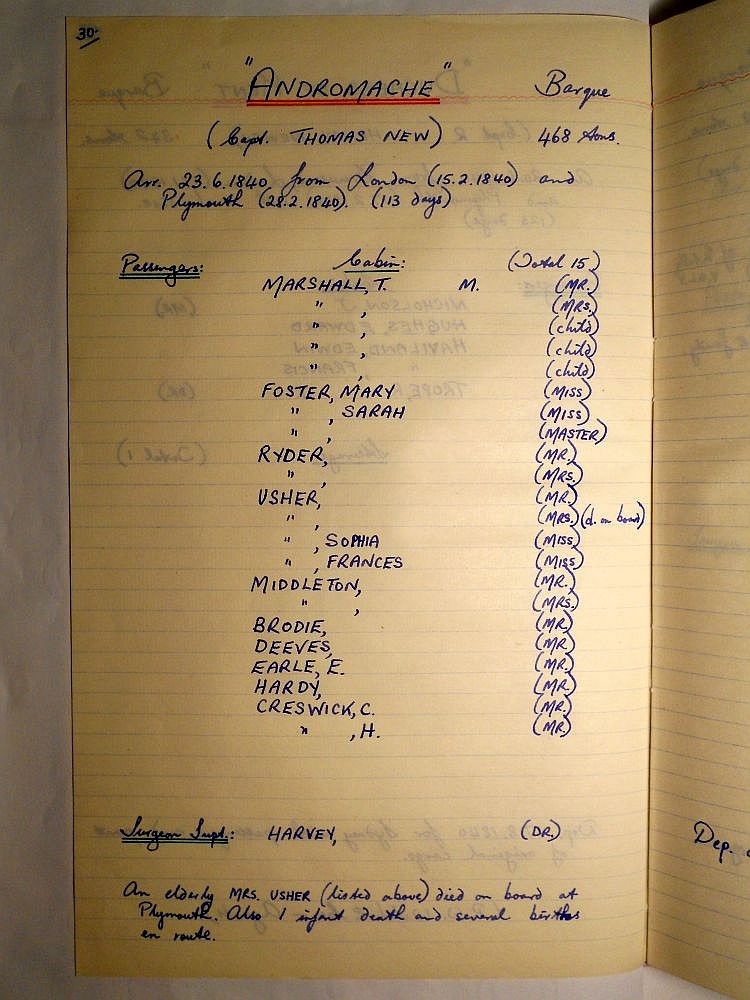 30.
"ANDROMACHE" Barque
(Capt. THOMAS NEW) 468 tons.
Arr. 23.6.1840 from London (15.2.1840) and
Plymouth (28.2.1840). (113 days)
Passengers: Cabin: (Total 15)
MARSHALL, T. M. (MR.)
" , (MRS.)
" , (child)
" , (child)
" , (child)
FOSTER, MARY (MISS)
" , SARAH (MISS)
" , (MASTER)
RYDER, (MR.)
" , (MRS.)
USHER, (MR.)
" , (MRS.) (d. on board)
" , SOPHIA (MISS)
" , FRANCES (MISS)
MIDDLETON, (MR.)
" , (MRS.)
BRODIE, (MR.)
DEEVES, (MR.)
EARLE, E. (MR.)
HARDY, (MR.)
CRESWICK, C. (MR.)
" , H. (MR.)
Surgeon Supt.: HARVEY, (DR.)
An elderly MRS. USHER (listed above) died on board at
Plymouth. Also 1 infant death and several births
en route.
Dep.